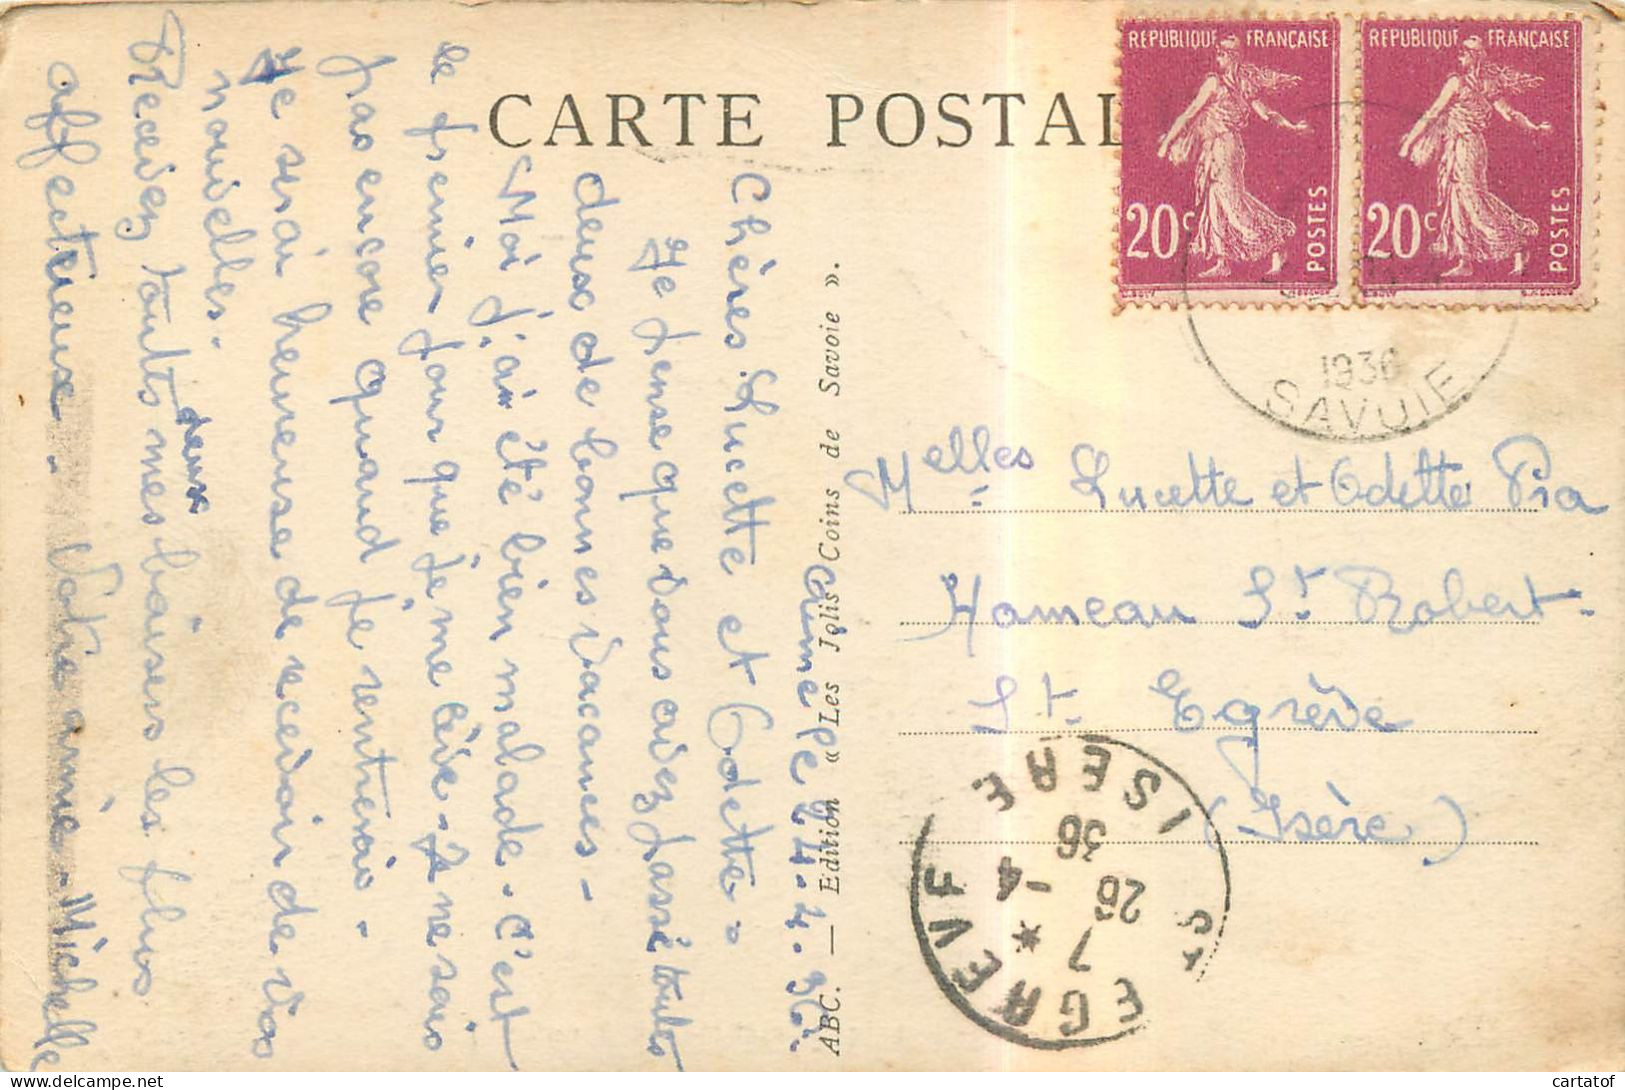 CARTE POSTAL
REPUBLIQUE FRANÇAISE
20c
POSTES
REPUBLIQUE FRANÇAISE
20c
POSTES
1936
SAVOIE
le 24.4.36.
Chères Lucette et Odette.
Je pense que vous avez passé toutes
deux de bonnes vacances.
Moi j'ai été bien malade. C'est
le premier jour que je me lève. Je ne sais
pas encore quand je rentrerai.
Je serai heureuse de recevoir de vos
nouvelles.
Recevez toutes deux mes baisers les plus
affectueux. Votre amie. Michelle
ABC. — Edition « Les Jolis Coins de Savoie ».
Melles Lucette et Odette Pra
Hameau St Robert.
St. Egrève
(Isère)
ST EGREVE
ISERE
7 *
26 -4
36
cartatof